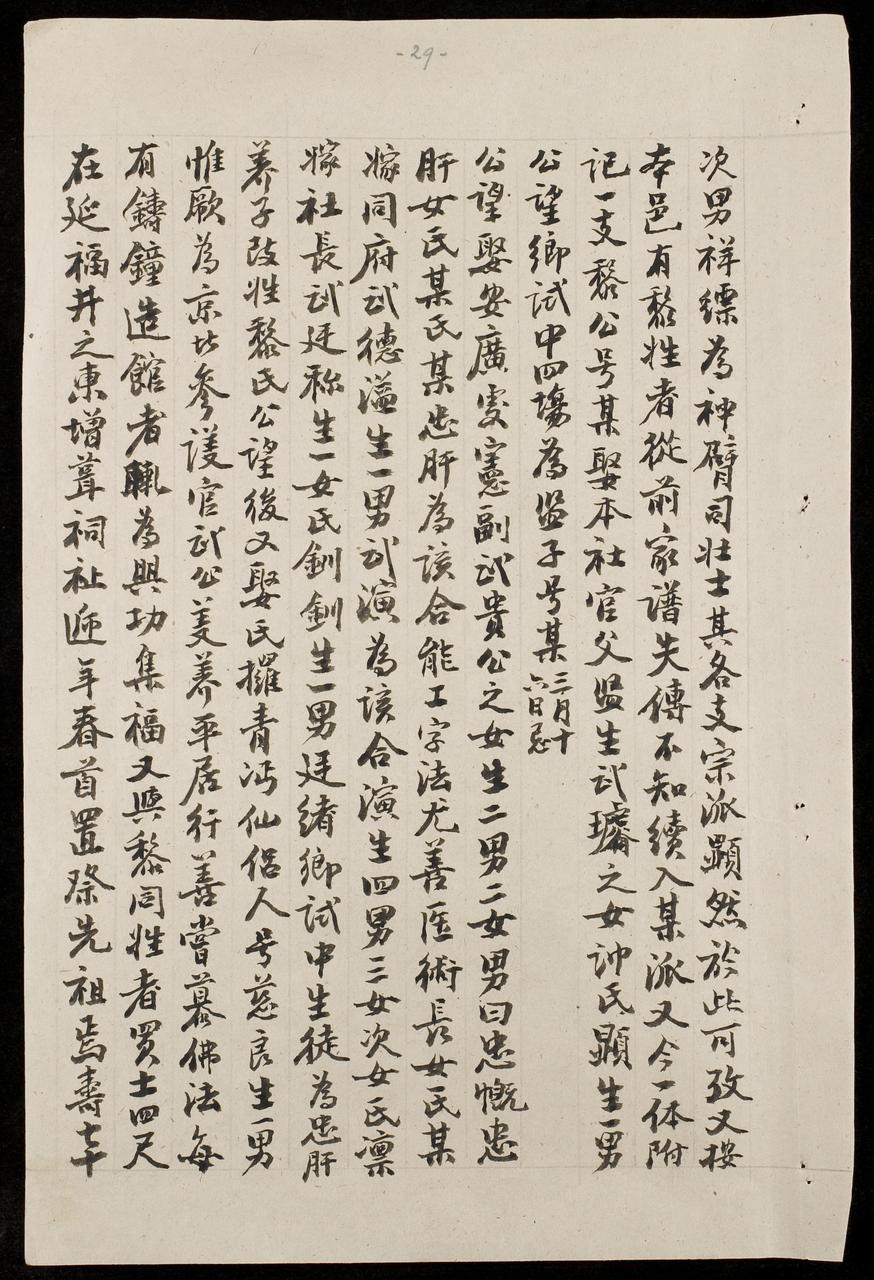 -29-
次男祥縹為神臂司壯士其各支宗派顯然於此可攷又按
本邑有黎姓者從前家譜失傳不知續入某派又今一体附
記一支黎公号某娶本社官父监生武璿之女諱氏顕生一男
公望鄉試中四塲為监子号某三月十六日忌
公望娶安廣憲副武貴公之女生二男二女男曰忠慨忠
肝女氏某氏某忠肝為該合能工字法尤善医術長女氏某
嫁同府武德溢生一男武演為該合演生四男三女次女氏凛
嫁社長武廷称生一女氏釧釧生一男廷緒鄉試中生徒為忠肝
养子改姓黎氏公望後又娶氏㩴青沔仙侣人号慈良生一男
惟厥為京北參護官武公美养平居行善嘗慕佛法每
有鑄鐘造館者輒為興功集福又與黎同姓者買土四尺
在延福井之東增葺祠祉逓年春首置祭先祖焉壽七十